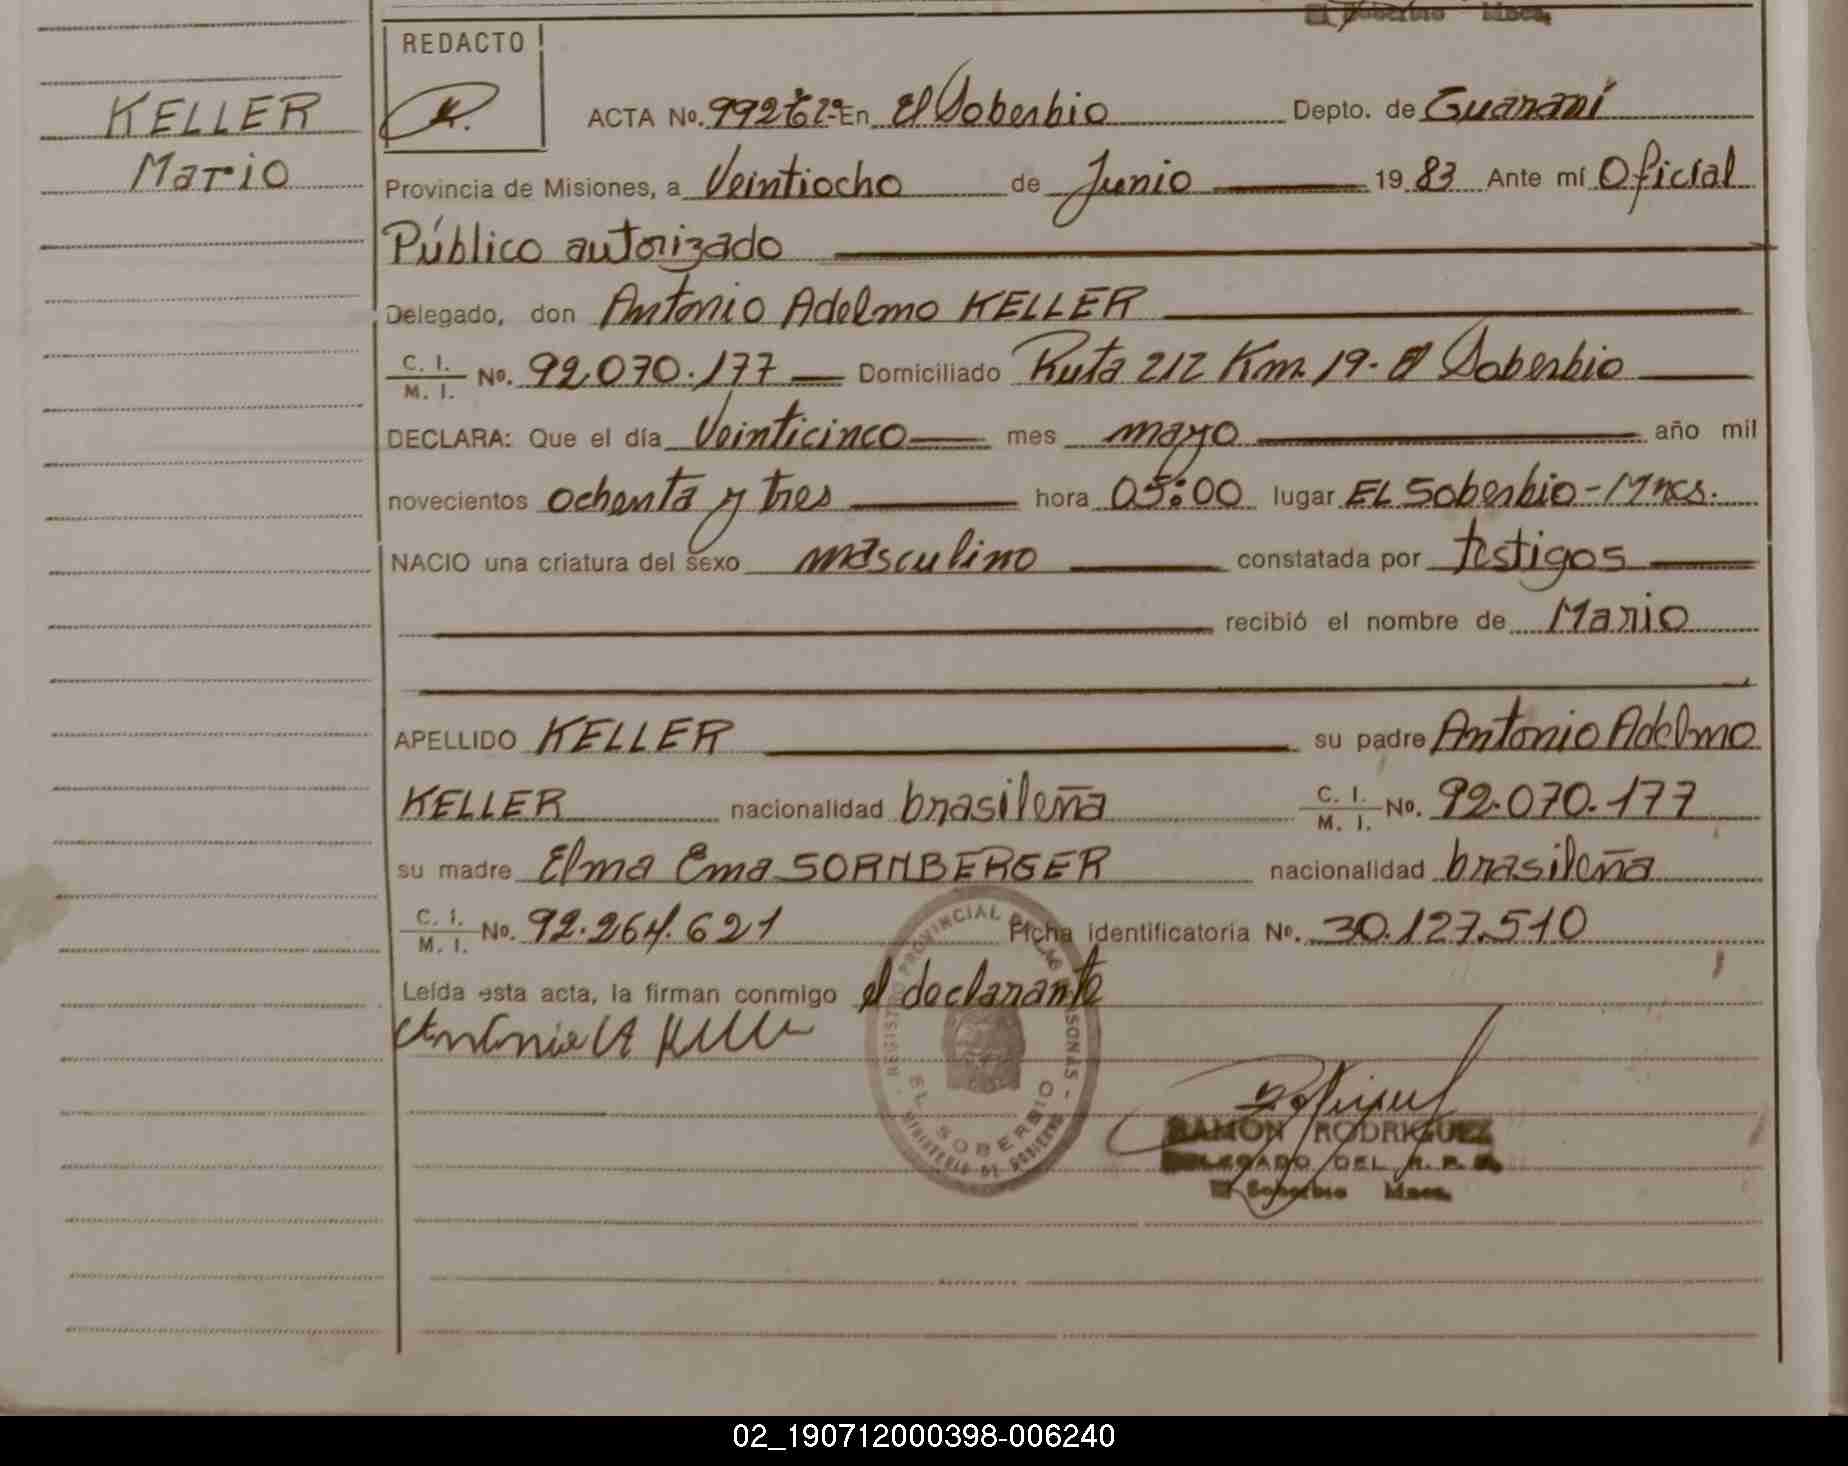 El Soberbio Mnes.
REDACTO
KELLER
Mario
ACTA No. 992 En El Soberbio Depto. de Guaraní
Provincia de Misiones, a Veintiocho de Junio 19 83 Ante mí Oficial
Público autorizado
Delegado, don Antonio Adelmo KELLER
C. I.
M. I. No. 92.070.177 Domiciliado Ruta 212 Km. 19- El Soberbio
DECLARA: Que el día Veinticinco mes mayo año mil
novecientos ochenta y tres hora 05:00 lugar EL Soberbio-Mnes.
NACIO una criatura del sexo masculino constatada por testigos
recibió el nombre de Mario
APELLIDO KELLER su padre Antonio Adelmo
KELLER nacionalidad brasileña C. I.
M. I. No. 92.070.177
su madre Elma Ema SORNBERGER nacionalidad brasileña
C. I.
M. I. No. 92.264.621 Ficha identificatoria No. 30.127.510
Leída esta acta, la firman conmigo el declarante
Antonio A Keller
REGISTRO PROVINCIAL DE LAS PERSONAS
EL SOBERBIO
MINISTERIO DE GOBIERNO
RAMON RODRIGUEZ
DELEGADO DEL R. P. P.
El Soberbio Mnes.
02_190712000398-006240